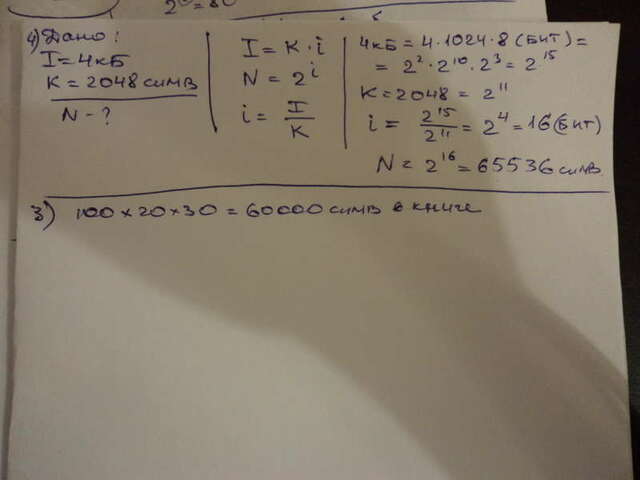 4) Дано:
I = 4кБ
K = 2048 симв
N - ?
I = K · i
N = 2^i
i = I/K
4кБ = 4 · 1024 · 8 (Бит) =
= 2² · 2¹⁰ · 2³ = 2¹⁵
K = 2048 = 2¹¹
i = 2¹⁵/2¹¹ = 2⁴ = 16 (Бит)
N = 2¹⁶ = 65536 симв.
3) 100 × 20 × 30 = 60000 симв в книге